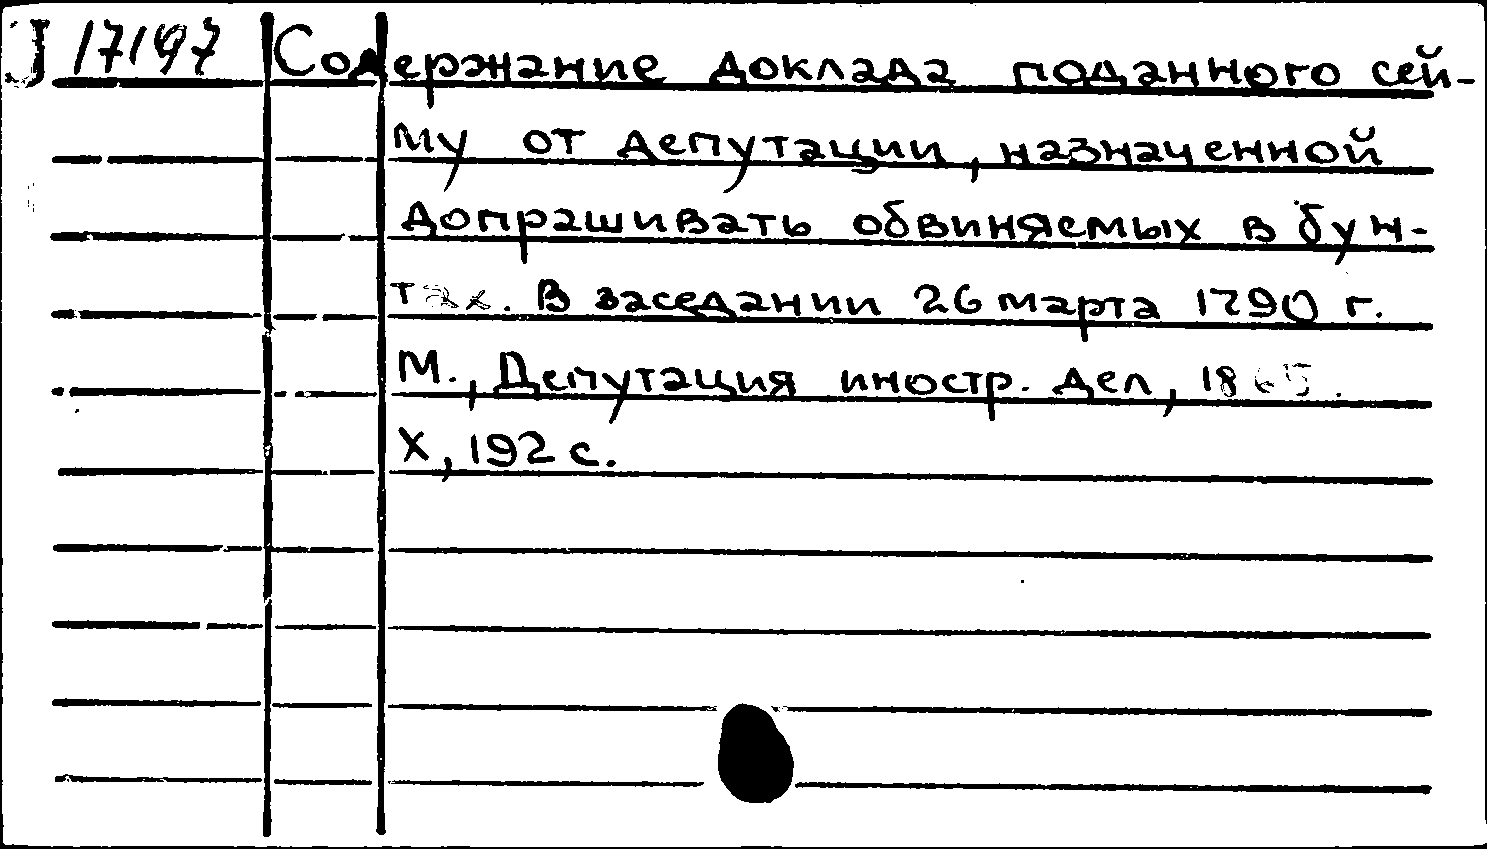 J 17197 Содержание доклада поданного сей-
му от депутации, назначенной
допрашивать обвиняемых в бун-
тах. В заседании 26 марта 1790 г.
М., Депутация иностр. дел, 1865.
X, 192 с.